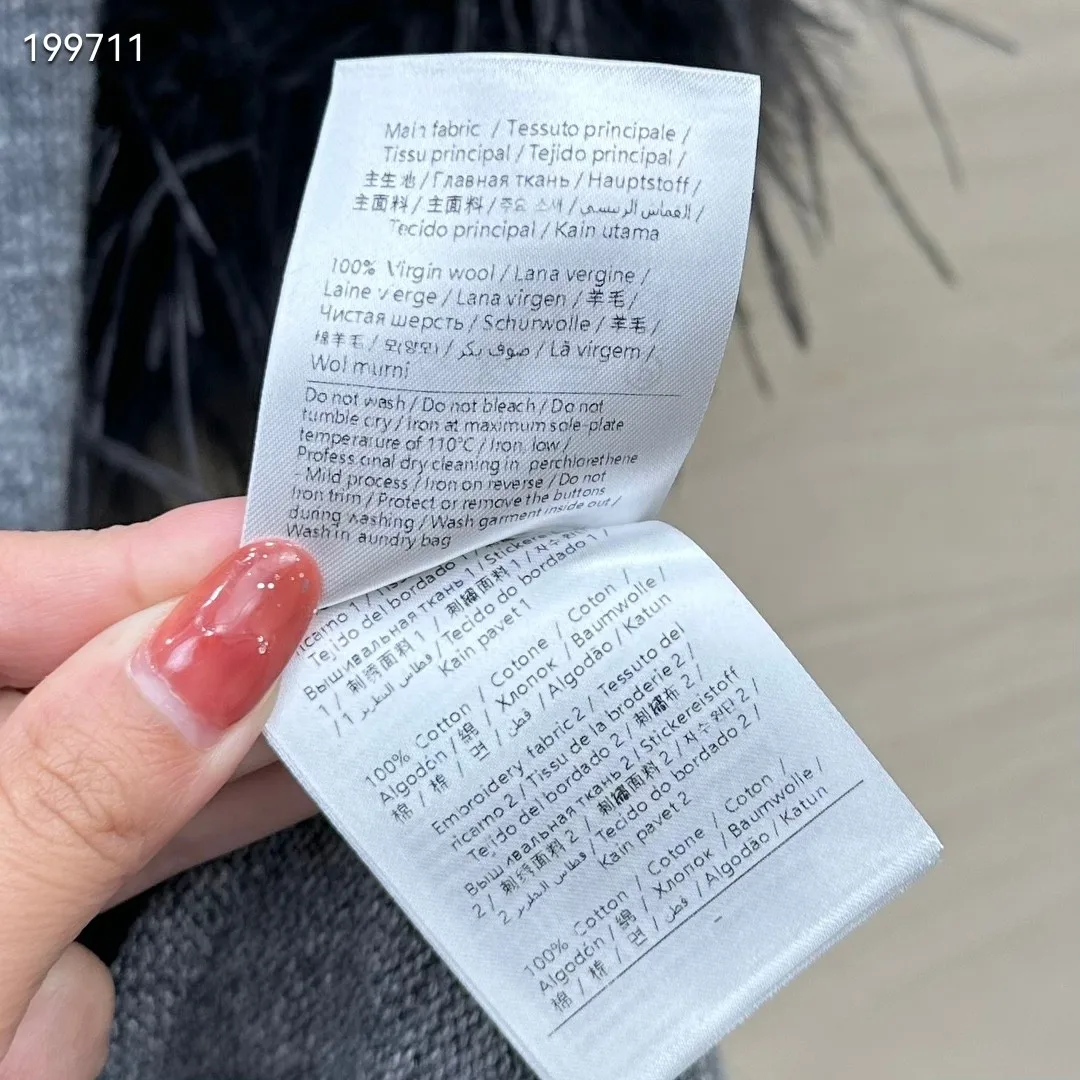 199711
Main fabric / Tessuto principale /
Tissu principal / Tejido principal /
主生地 / Главная ткань / Hauptstoff /
主面料 / 主面料 / 주요 소재 / القماش الرئيسي /
Tecido principal / Kain utama
100% Virgin wool / Lana vergine /
Laine vierge / Lana virgen / 羊毛 /
Чистая шерсть / Schurwolle / 羊毛 /
棉羊毛 / 모(양모) / صوف بكر / Lã virgem /
Wol murni
Do not wash / Do not bleach / Do not
tumble dry / Iron at maximum sole-plate
temperature of 110°C / Iron, low /
Professional dry cleaning in perchlorethene
- Mild process / Iron on reverse / Do not
iron trim / Protect or remove the buttons
during washing / Wash garment inside out /
Wash in laundry bag
ricamo 1 /
Tejido del bordado 1 / Stickere
Вышивальная ткань 1 / 刺繡面料 1 / 자수원
1 / 刺绣面料 1 / Tecido do bordado 1 /
/ قطاس التطريز 1 / Kain pavet 1
100% Cotton / Cotone / Coton /
Algodón / 綿 / Хлопок / Baumwolle /
棉 / 棉 / 면 / قطن / Algodão / Katun
Embroidery fabric 2 / Tessuto del
ricamo 2 / Tissu de la broderie 2 /
Tejido del bordado 2 / 刺繍布 2 /
Вышивальная ткань 2 / Stickereistoff
2 / 刺绣面料 2 / 刺繡面料 2 / 자수 원단 2 /
قطاس التطريز 2 / Tecido do bordado 2 /
Kain pavet 2
100% Cotton / Cotone / Coton /
Algodón / 綿 / Хлопок / Baumwolle /
棉 / 棉 / 면 / قطن / Algodão / Katun
-